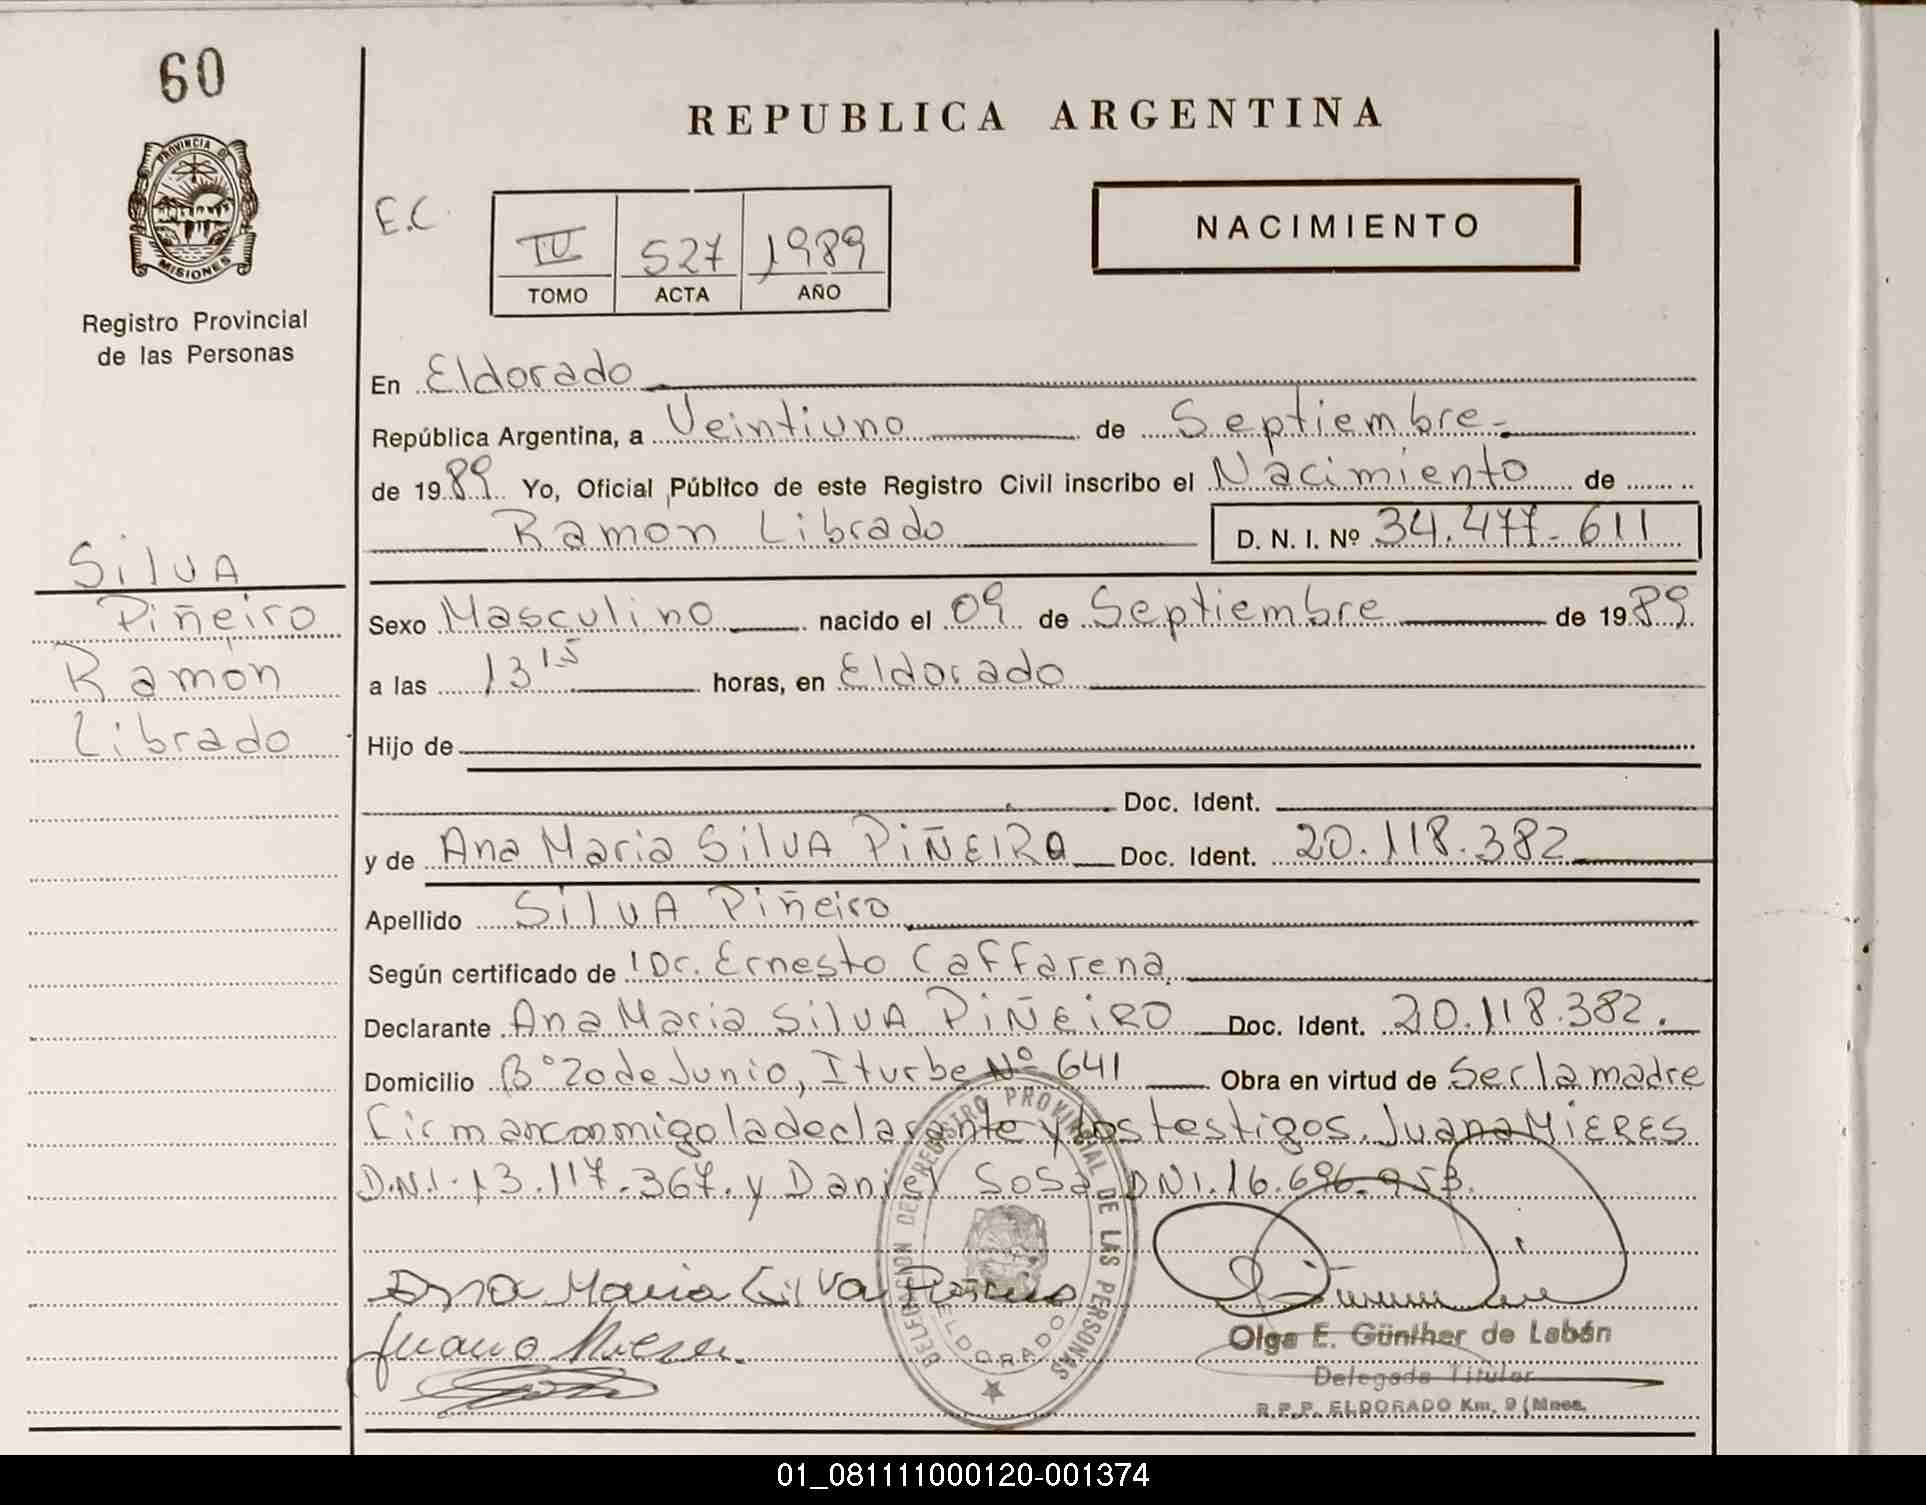 60
PROVINCIA DE
MISIONES
Registro Provincial
de las Personas
SilVA
Piñeiro
Ramón
Librado
REPUBLICA ARGENTINA
E.C.
IV 527 1989
TOMO ACTA AÑO
NACIMIENTO
En Eldorado
República Argentina, a Veintiuno de Septiembre.
de 1989 Yo, Oficial Público de este Registro Civil inscribo el Nacimiento de
Ramon Librado D. N. I. Nº 34.477.611
Sexo Masculino nacido el 09 de Septiembre de 1989
a las 13 15 horas, en Eldorado
Hijo de
Doc. Ident.
y de Ana Maria SilVA PiÑEIRO Doc. Ident. 20.118.382
Apellido SilVA Piñeiro
Según certificado de Dr. Ernesto Caffarena
Declarante Ana Maria SilVA PiÑEiRO Doc. Ident. 20.118.382.
Domicilio Bº 20 de Junio, Iturbe Nº 641 Obra en virtud de Ser la madre
Firman conmigo la declarante y los testigos. Juana MiERES
D.N.I. 13.117.367. y Daniel Sosa DNI. 16.696.953.
Ana Maria Silva Piñeiro
Juana Mieres
DELEGACION DEL REGISTRO PROVINCIAL DE LAS PERSONAS
ELDORADO
Olga E. Günther de Labán
Delegada Titular
R.P.P. ELDORADO Km. 9 (Mnes.
01_081111000120-001374